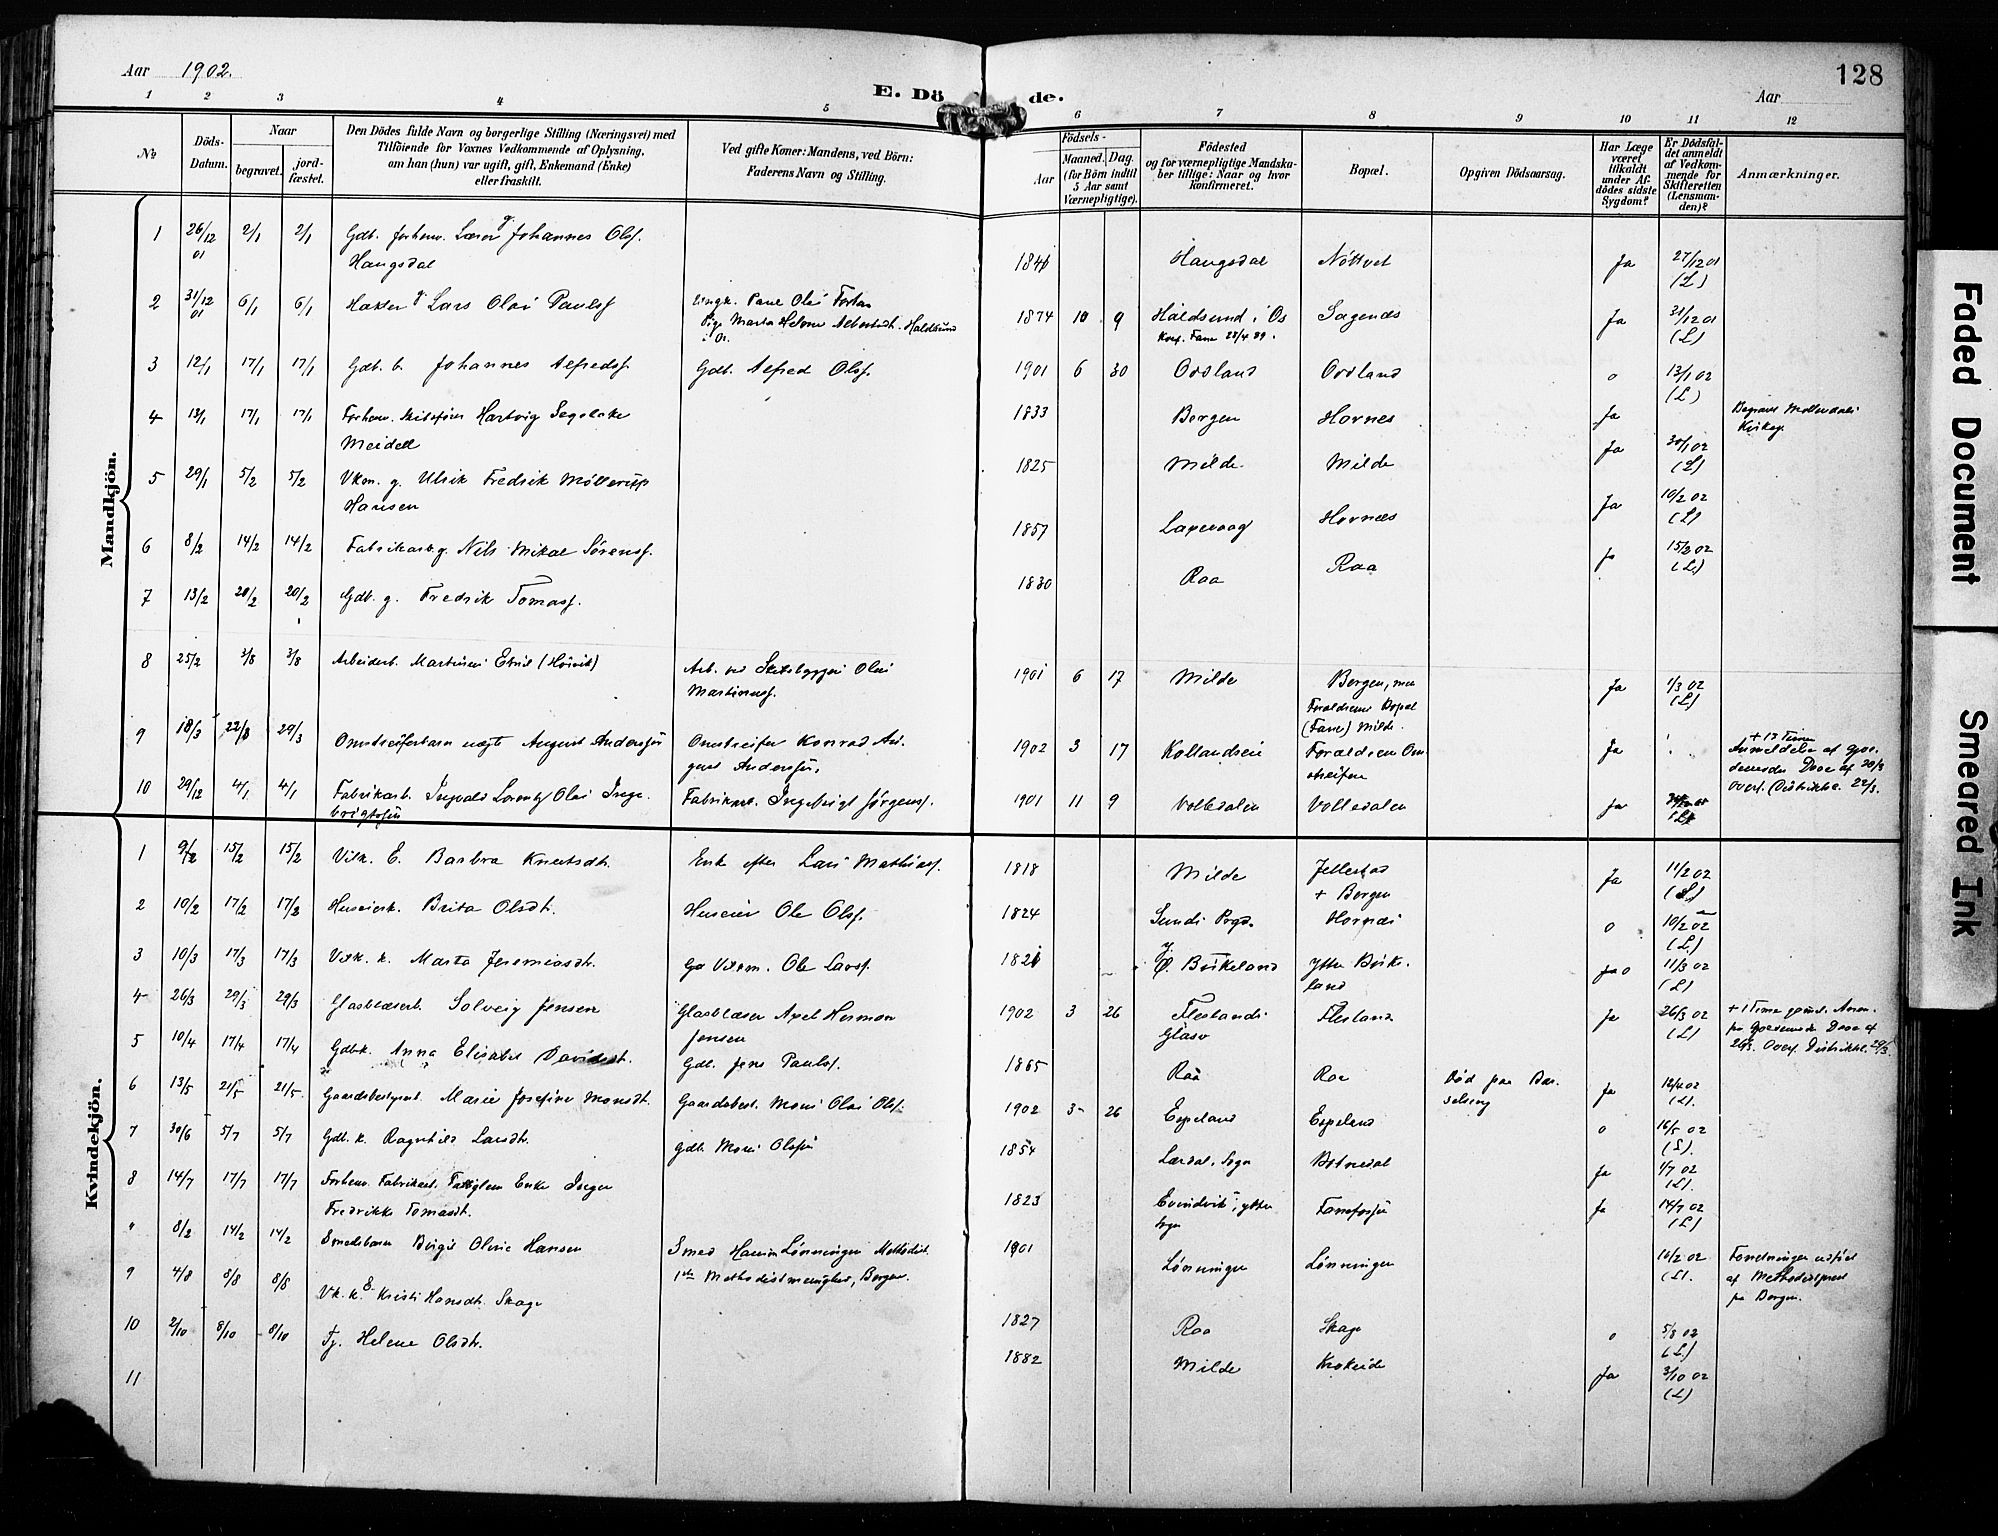 Aar 1902.
E. Dö de.
Aar
128
1 2 3 4 5 6 7 8 9 10 11 12
No
Döds-
Datum.
Naar
begravet.
jord-
fæstet.
Den Dödes fulde Navn og borgerlige Stilling (Næringsvei) med
Tilföiende for Voxnes Vedkommende af Oplysning,
om han (hun) var ugift, gift, Enkemand (Enke)
eller fraskilt.
Ved gifte Koner: Mandens, ved Börn:
Faderens Navn og Stilling.
Födsels-
Aar
Maaned. Dag.
(for Börn indtil
5 Aar samt
Værnepligtige).
Födested
og for værnepligtige Mandska-
ber tillige: Naar og hvor
konfirmeret.
Bopæl.
Opgiven Dödsaarsag.
Har Læge
været
tilkaldt
under Af-
dödes sidste
Sygdom?
Er Dödsfal-
det anmeldt
af Vedkom-
mende for
Skifteretten
(Lensman-
den)?
Anmærkninger.
Mandkjön.
1 26/12 01 2/1 2/1 Gdb. forhenv. Lærer g Johannes Ols.
Haugsdal
1841 Haugsdal Nöttvet Ja 27/12 01
(L)
2 31/12 01 6/1 6/1 Lars Olai Pauls.
Ungk. Paul Olai
Pige Marta Helene Haldsund
i Os.
1874 10 9 Haldsund i Os Ja 31/12 01
Konf. Fane 28/4 89. (L)
3 12/1 17/1 17/1 Gdb. b. Johannes Alfreds. Gdb. Alfred Ols. 1901 6 30 Ordland Ordland o 13/1 02
(L)
4 13/1 17/1 17/1 Forhenv. Skibsfører Hartvig Segelcke
Meidell
1833 Bergen Hornes Ja Begravet Møllendals
Kirkeg.
5 29/1 5/2 5/2 Vkm. g. Ulrik Fredrik Möllerup
Hansen
1825 Milde Milde Ja 30/1 02
(L)
6 8/2 14/2 14/2 Fabrikarb. g. Nils Mikal Sörens. 1857 Laxevaag Hornes Ja 10/2 02
(L)
7 13/2 20/2 20/2 Gdb. g. Fredrik Tomas. 1830 Raa Raa Ja 15/2 02
(L)
8 25/2 3/8 3/8 Arbeiderb. Martinus Emil (Hövik)
Arb. ved Skibsbyggeri Olai
Martinus.
1901 6 17 Milde Bergen, men
Forældrenes Bopæl
(Fane) Milde.
Ja 1/3 02
(L)
9 18/3 22/3 29/3 Omstreiferbarn ægte August Andersen
Omstreifer Konrad Au-
gust Andersen.
1902 3 17 Kollandseie Forældrene Om-
streifere
Ja + 13 Timer
Anmeldelse af
Doos af 20/3
Overs. Distriktsl. 22/3.
10 29/12 4/1 4/1 Fabrikarb. Ingvald Lorentz Olai Inge-
brigtsen
Fabrikarb. Ingebrigt Jörgens. 1901 11 9 Volledalen Volledalen Ja
(L)
Kvindekjön.
1 9/2 15/2 15/2 Vilk. E. Barbra Knutsdt. Enke efter Lars Mathias. 1818 Milde Jellestad
+ Bergen
Ja 11/2 02
(L)
2 10/2 17/2 17/2 Huseierk. Brita Olsdt. Huseier Ole Ols. 1824 Sunds Prgd. Hornæs o 10/2 02
(L)
3 10/3 17/3 17/3 Vilk. k. Marta Jeremiasdt. Ole Lars. 1821 Y. Birkeland Ytre Birke-
land
Ja o 11/3 02
(L)
4 26/3 29/3 29/3 Glasblæserb. Solveig Jensen
Glasblæser Axel Herman
Jensen
1902 3 26 Fleslands
Glasv.
Flesland Ja 26/3 02
(L)
+ 1 Time gammel.
Doos af
26/3. Overs. Distriktsl. 29/3.
5 10/4 17/4 17/4 Gdbk. Anna Elisabet Davidsdt. Gdb. Jens Pauls. 1865 Raa Raa Död paa Bar-
selseng
Ja 12/4 02
(L).
6 13/5 21/5 21/5 Gaardsbestyrerb. Marie Josefine Monsdt. Gaardsbest. Mons Olai Ols. 1902 3 26 Espeland Espeland o 16/5 02
(L).
7 30/6 5/7 5/7 Gdb. k. Ragnhild Larsdt. Gdb. Mons Olsen 1854 Lærdal, Sogn Botnedal Ja 1/7 02
(L).
8 14/7 17/7 17/7 Forhenv. Fabrikarb. Enke Inger
Fredrikke Tomasdt.
1823 Evindvik, ytre
Sogn
Fanefossen Ja 14/7 02
(L)
" 8/2 14/2 14/2 Smedsbarn Birgit Olivie Hansen
Smed Hans Lønningen Methodist.
1ste Methodistmenighed, Bergen.
1901 Lønningen Lønningen 10/2 02
(L).
Forretningen udført
af Methodistprest
fra Bergen.
9 4/8 8/8 8/8 Vk. k. E Kristi Hansdt. Skage 1827 Raa Skage o 5/8 02
(L)
10 2/10 8/10 8/10 Tj. Helene Olsdt. 1882 Milde Krokeide Ja 3/10 02
(L)
11
Faded Document
Smeared Ink